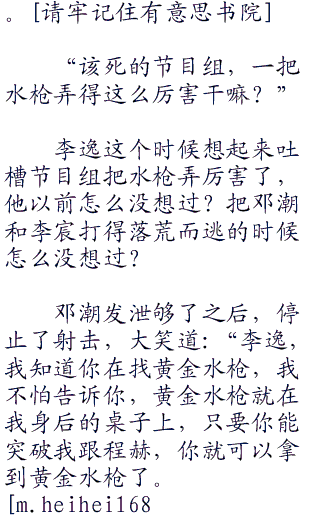 。[请牢记住有意思书院]
“该死的节目组，一把
水枪弄得这么厉害干嘛？”
李逸这个时候想起来吐
槽节目组把水枪弄厉害了，
他以前怎么没想过？把邓潮
和李宸打得落荒而逃的时候
怎么没想过？
邓潮发泄够了之后，停
止了射击，大笑道：“李逸，
我知道你在找黄金水枪，我
不怕告诉你，黄金水枪就在
我身后的桌子上，只要你能
突破我跟程赫，你就可以拿
到黄金水枪了。
[m.heihei168